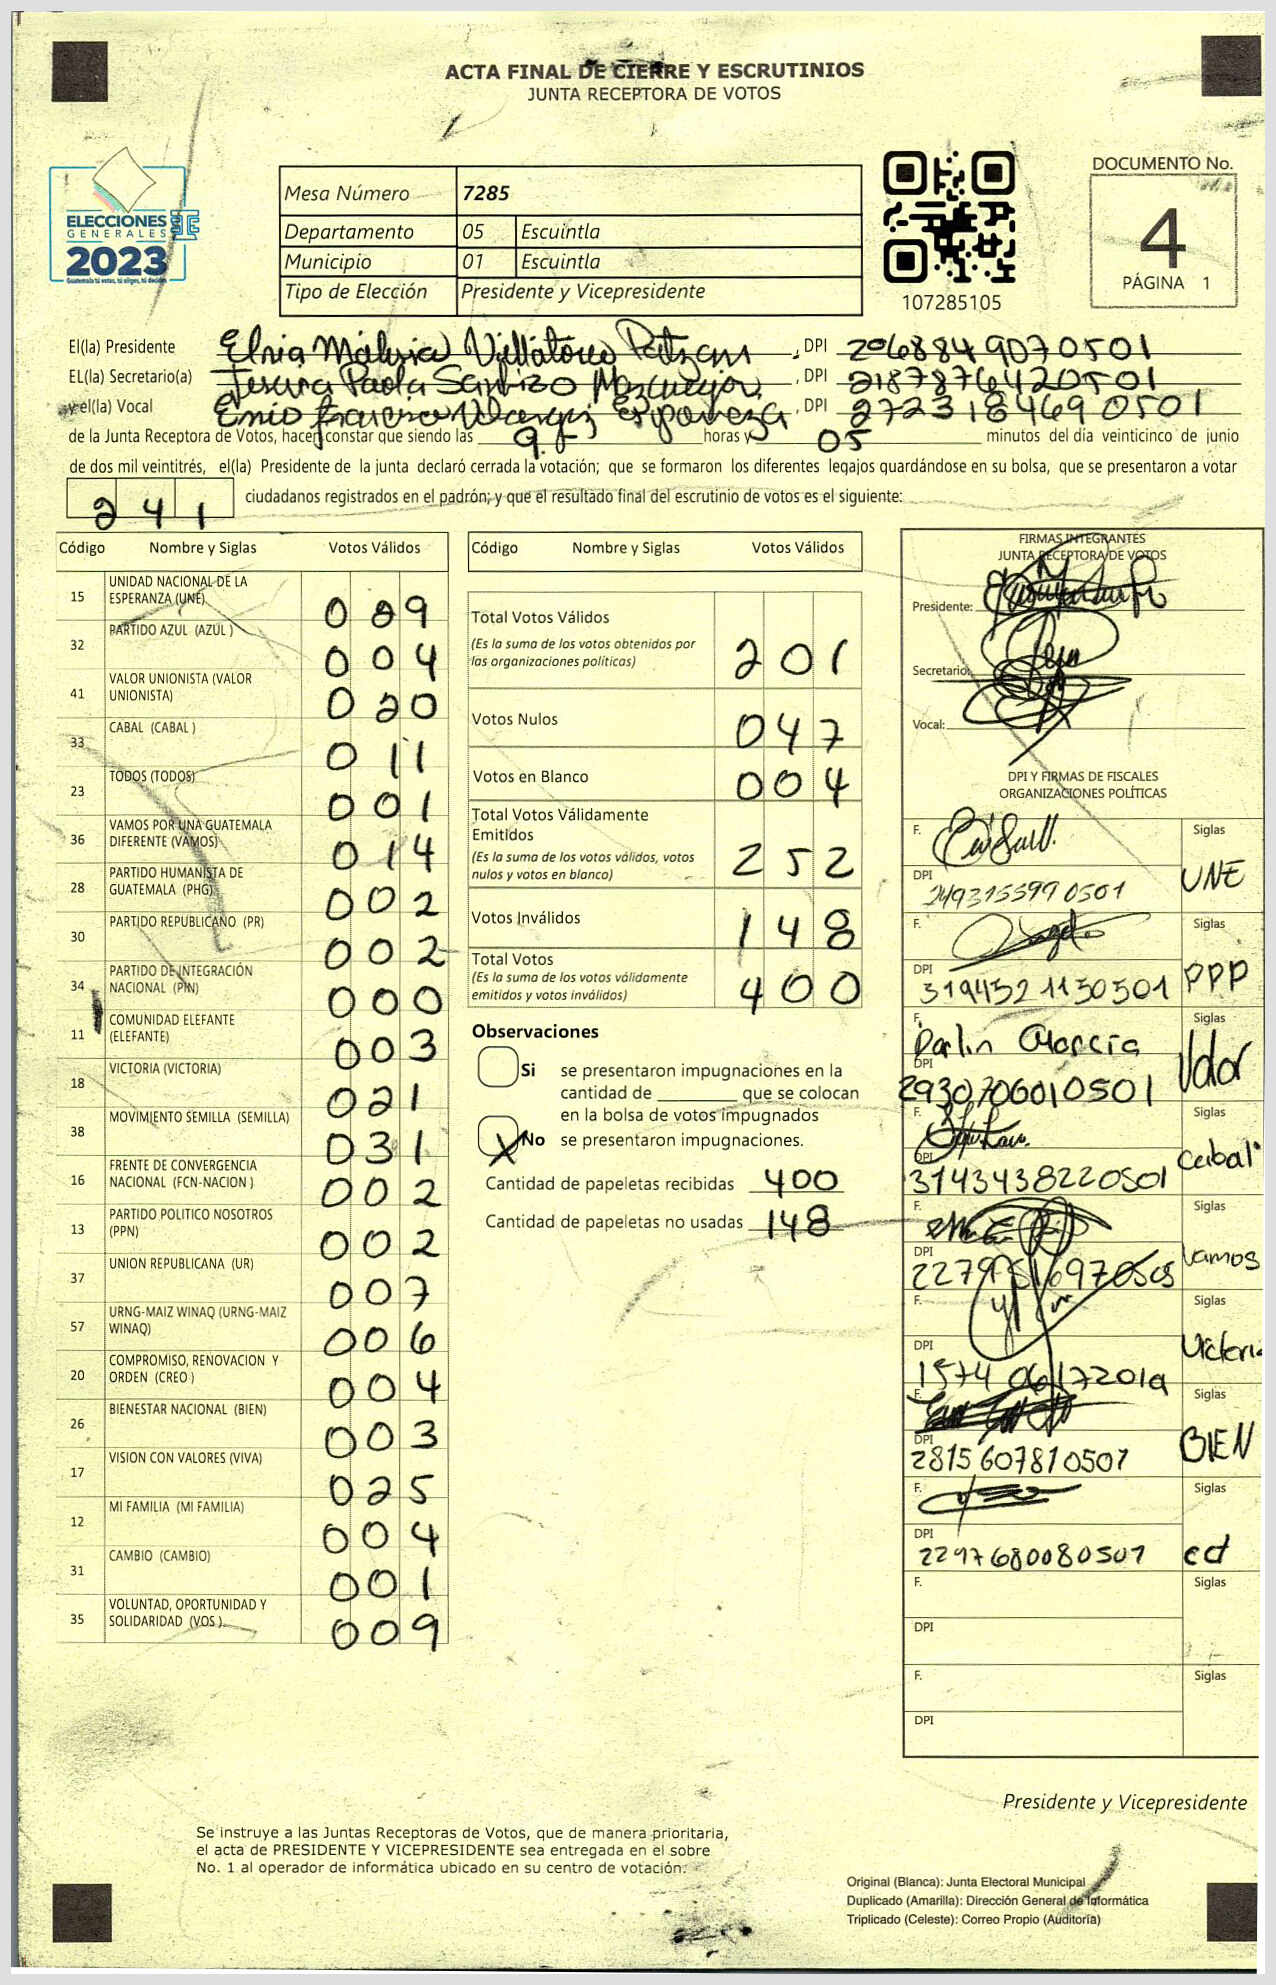 ACTA FINAL DE CIERRE Y ESCRUTINIOS
JUNTA RECEPTORA DE VOTOS
ELECCIONES
GENERALES
2023
Guatemala tú votas, tú eliges, tú decides
Mesa Número 7285
Departamento 05 Escuintla
Municipio 01 Escuintla
Tipo de Elección Presidente y Vicepresidente
107285105
DOCUMENTO No.
4
PÁGINA 1
El(la) Presidente , DPI 2068849070501
EL(la) Secretario(a) Paola , DPI 2187876420501
y el(la) Vocal , DPI 2723184690501
de la Junta Receptora de Votos, hacen constar que siendo las 9 horas y 05 minutos del día veinticinco de junio
de dos mil veintitrés, el(la) Presidente de la junta declaró cerrada la votación; que se formaron los diferentes legajos guardándose en su bolsa, que se presentaron a votar
241 ciudadanos registrados en el padrón; y que el resultado final del escrutinio de votos es el siguiente:
Código Nombre y Siglas Votos Válidos
15 UNIDAD NACIONAL DE LA ESPERANZA (UNE) 029
32 PARTIDO AZUL (AZUL ) 004
41 VALOR UNIONISTA (VALOR UNIONISTA) 020
33 CABAL (CABAL ) 011
23 TODOS (TODOS) 001
36 VAMOS POR UNA GUATEMALA DIFERENTE (VAMOS) 014
28 PARTIDO HUMANISTA DE GUATEMALA (PHG) 002
30 PARTIDO REPUBLICANO (PR) 002
34 PARTIDO DE INTEGRACIÓN NACIONAL (PIN) 000
11 COMUNIDAD ELEFANTE (ELEFANTE) 003
18 VICTORIA (VICTORIA) 021
38 MOVIMIENTO SEMILLA (SEMILLA) 031
16 FRENTE DE CONVERGENCIA NACIONAL (FCN-NACION ) 002
13 PARTIDO POLITICO NOSOTROS (PPN) 002
37 UNION REPUBLICANA (UR) 007
57 URNG-MAIZ WINAQ (URNG-MAIZ WINAQ) 006
20 COMPROMISO, RENOVACION Y ORDEN (CREO ) 004
26 BIENESTAR NACIONAL (BIEN) 003
17 VISION CON VALORES (VIVA) 025
12 MI FAMILIA (MI FAMILIA) 004
31 CAMBIO (CAMBIO) 001
35 VOLUNTAD, OPORTUNIDAD Y SOLIDARIDAD (VOS ) 009
Código Nombre y Siglas Votos Válidos
Total Votos Válidos
(Es la suma de los votos obtenidos por las organizaciones políticas) 201
Votos Nulos 047
Votos en Blanco 004
Total Votos Válidamente Emitidos
(Es la suma de los votos válidos, votos nulos y votos en blanco) 252
Votos Inválidos 148
Total Votos
(Es la suma de los votos válidamente emitidos y votos inválidos) 400
Observaciones
Si se presentaron impugnaciones en la
cantidad de ________ que se colocan
en la bolsa de votos impugnados
X No se presentaron impugnaciones.
Cantidad de papeletas recibidas 400
Cantidad de papeletas no usadas 148
FIRMAS INTEGRANTES
JUNTA RECEPTORA DE VOTOS
Presidente:
Secretario:
Vocal:
DPI Y FIRMAS DE FISCALES
ORGANIZACIONES POLÍTICAS
F. Siglas
DPI UNE
F. Siglas
DPI PPP
F. Darlin Garcia Siglas
DPI 2930706010501 Valor
F. Siglas
DPI 3143438220501 Cabal
F. Siglas
DPI Vamos
F. Siglas
DPI Victoria
F. Siglas
DPI 2815607810501 BIEN
F. Siglas
DPI 2297680080501 cd
F. Siglas
DPI
F. Siglas
DPI
Presidente y Vicepresidente
Se instruye a las Juntas Receptoras de Votos, que de manera prioritaria,
el acta de PRESIDENTE Y VICEPRESIDENTE sea entregada en el sobre
No. 1 al operador de informática ubicado en su centro de votación.
Original (Blanca): Junta Electoral Municipal
Duplicado (Amarilla): Dirección General de Informática
Triplicado (Celeste): Correo Propio (Auditoría)